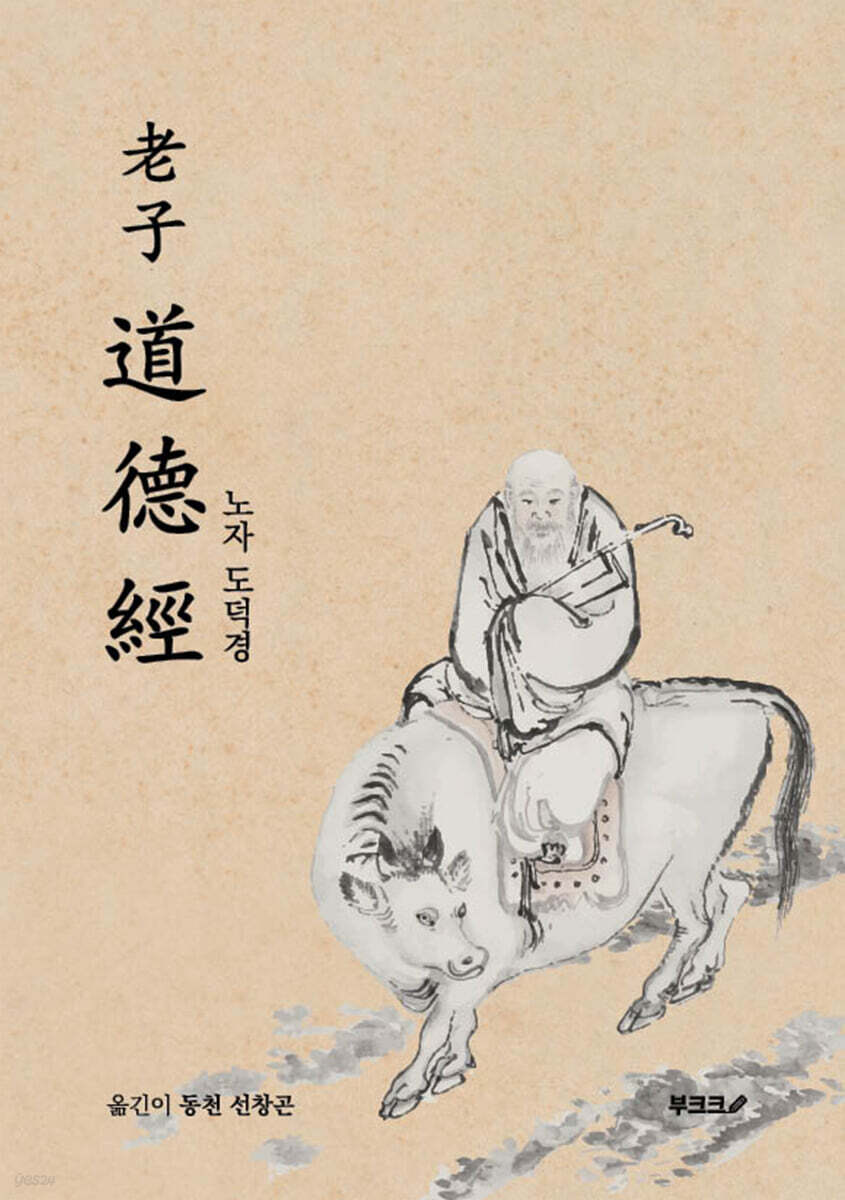 老子 道德經
노자 도덕경
옮긴이 동천 선창곤
부크크
yes24